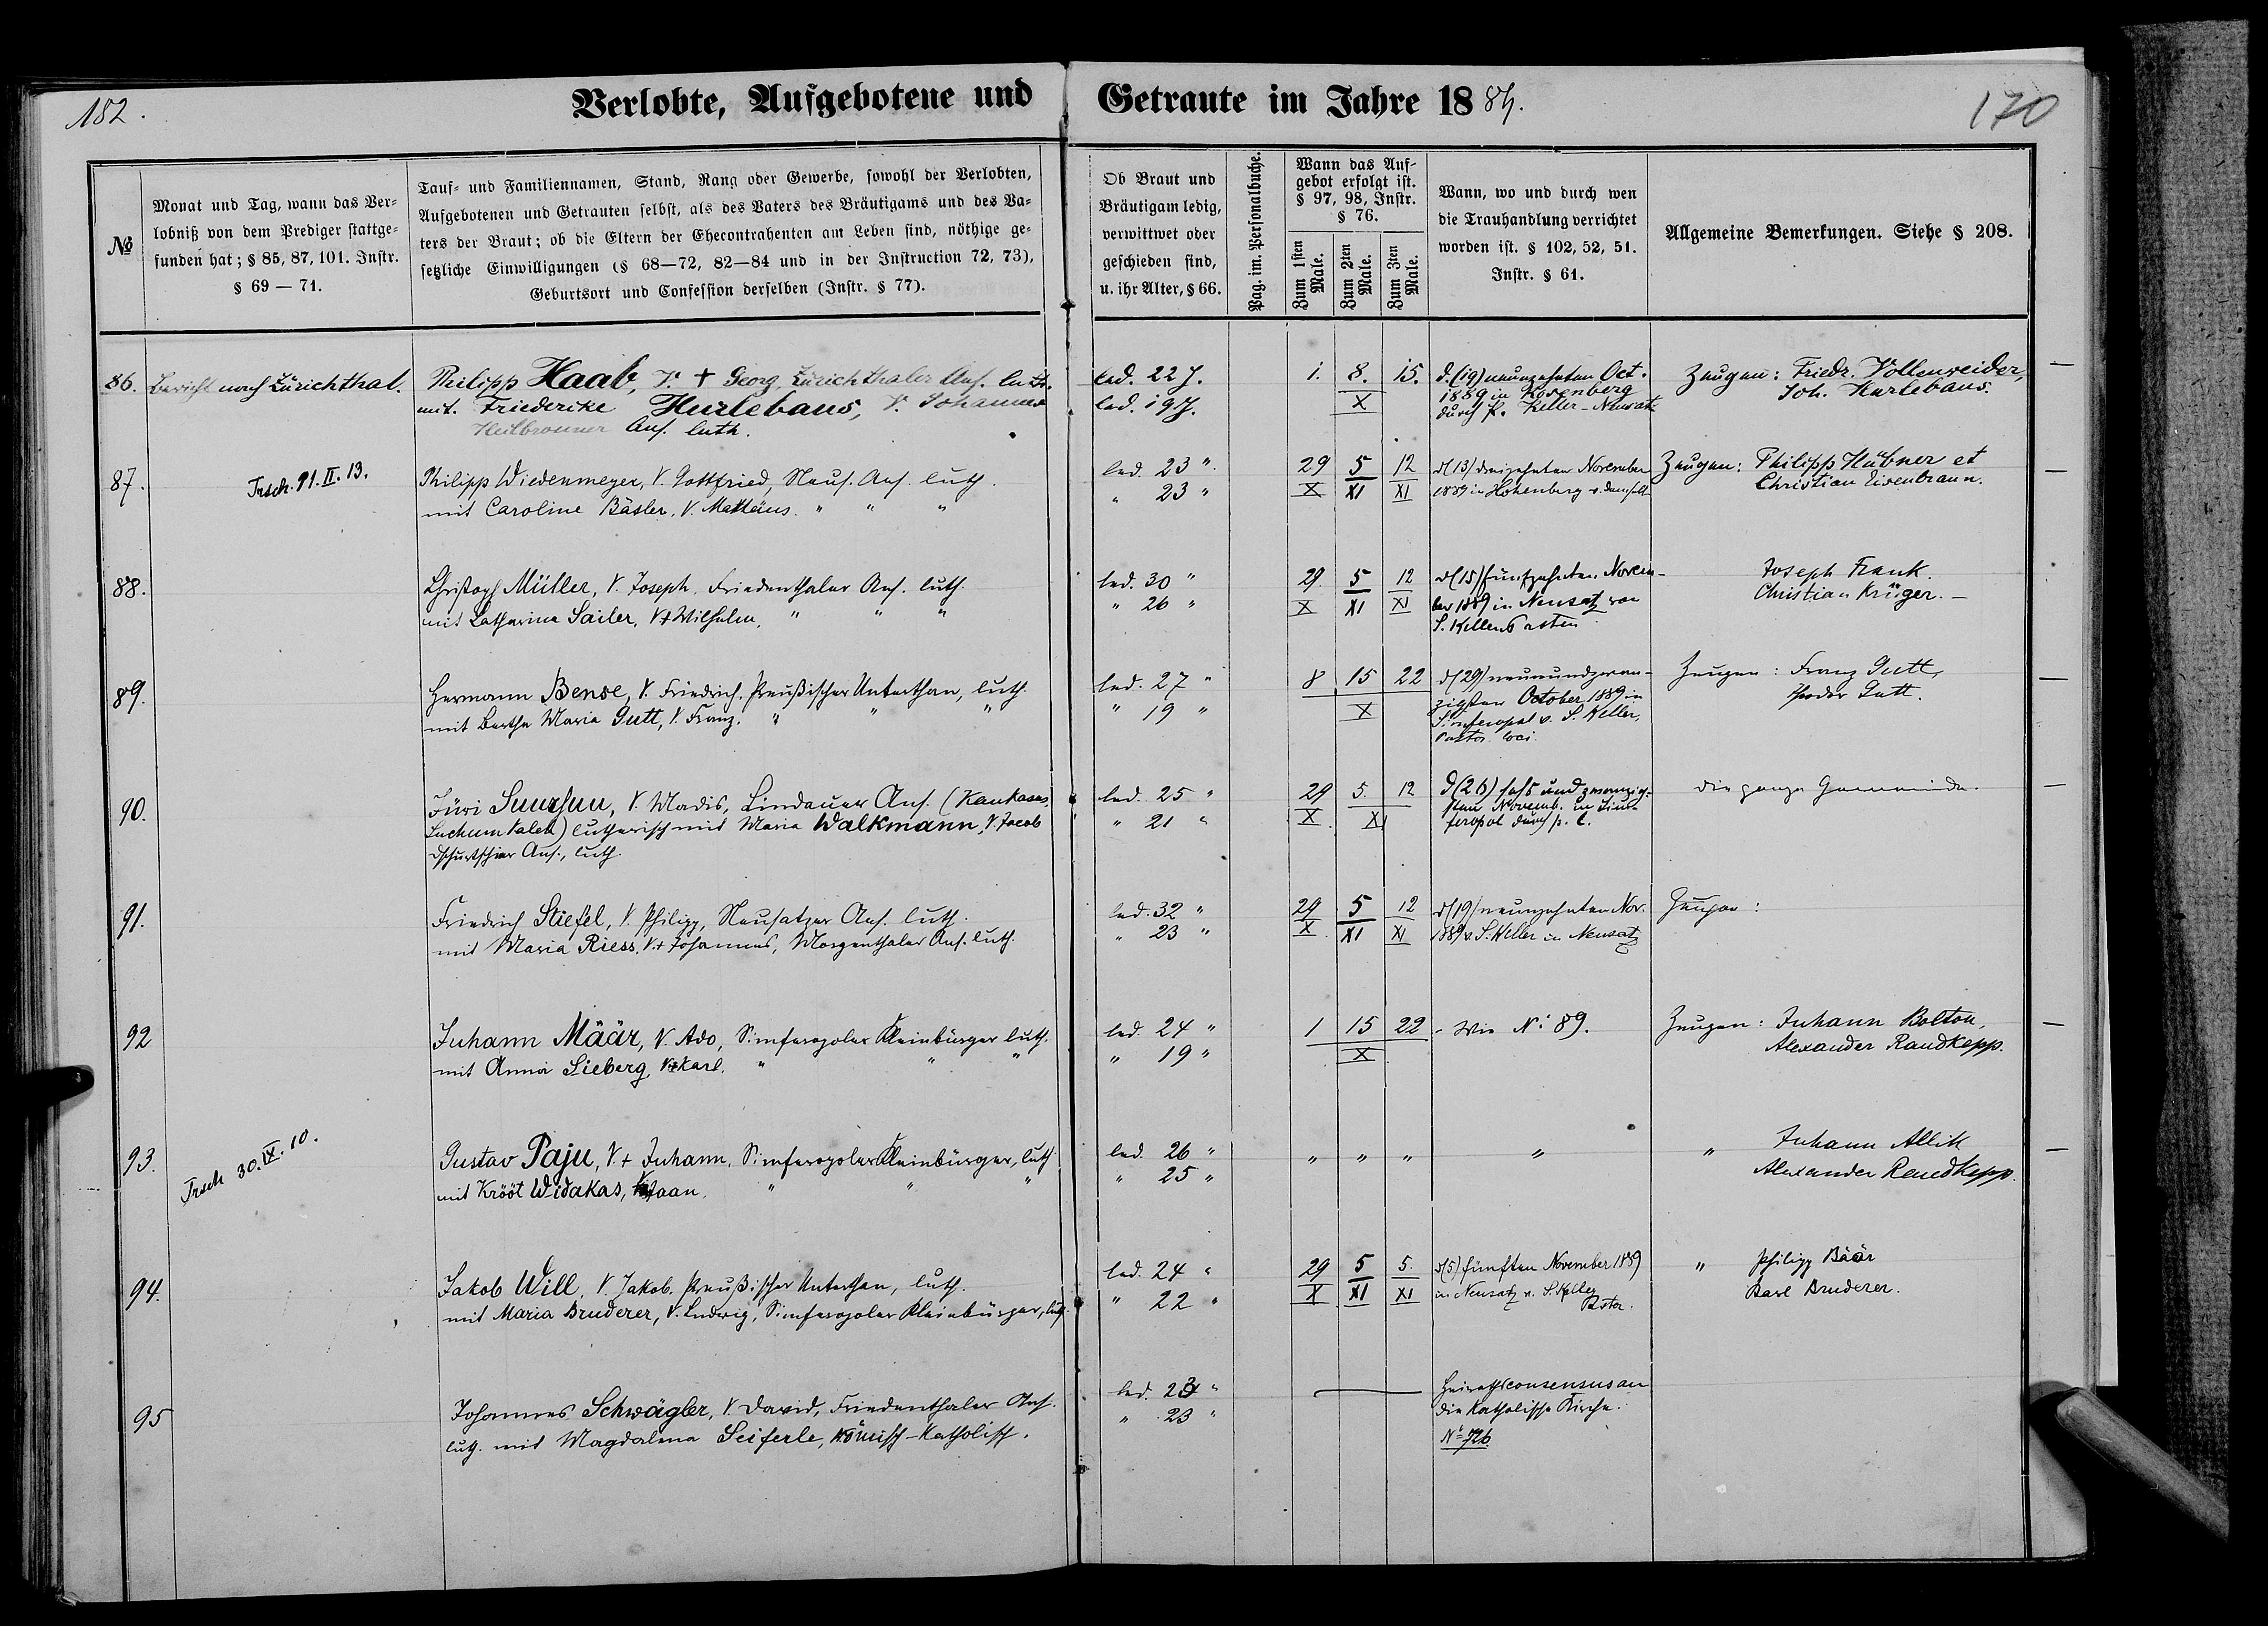 182.
Verlobte, Aufgebotene und Getraute im Jahre 1889.
170
№
Monat und Tag, wann das Ver-
lobniß von dem Prediger stattge-
funden hat; § 85, 87, 101. Instr.
§ 69 — 71.
Tauf- und Familiennamen, Stand, Rang oder Gewerbe, sowohl der Verlobten,
Aufgebotenen und Getrauten selbst, als des Vaters des Bräutigams und des Va-
ters der Braut; ob die Eltern der Ehecontrahenten am Leben sind, nöthige ge-
setzliche Einwilligungen (§ 68—72, 82—84 und in der Instruction 72, 73),
Geburtsort und Confession derselben (Instr. § 77).
Ob Braut und
Bräutigam ledig,
verwittwet oder
geschieden sind,
u. ihr Alter, § 66.
Pag. im. Personalbuche.
Wann das Auf-
gebot erfolgt ist.
§ 97, 98, Instr.
§ 76.
Zum 1sten Male.
Zum 2ten Male.
Zum 3ten Male.
Wann, wo und durch wen
die Trauhandlung verrichtet
worden ist. § 102, 52, 51.
Instr. § 61.
Allgemeine Bemerkungen. Siehe § 208.
86. Bericht nach Zürichthal. Philipp Haab, V. + Georg, Zürichthaler Ans. luth. led. 22 J. 1. 8. 15. d. (19) neunzehnten Oct. Zeugen: Friedr. Vollenweider, —
mit Friedericke Hurlebaus, V. Johannes led. 19 J. X 1889 in Rosenberg Joh. Hurlebaus.
Heilbronner Ans. luth. durch P. Keller-Neusatz
87. Trsch. 91. II. 13. Philipp Wiedenmeyer, V. Gottfried, Neus. Ans. luth. led. 23 " 29 5 12 d (13) dreizehnten November Zeugen: Philipp Hübner et —
mit Caroline Bäsler, V. Mattäus. " " " " 23 " X XI XI 1889 in Hohenberg v. demselb Christian Eisenbraun.
88. Christoph Müller, V. Joseph, Friedenthaler Ans. luth. led. 30 " 29 5 12 d (15) fünfzehnten Novem- Joseph Frank.
mit Catharina Sailer, V+ Wilhelm, " " " " 26 " X XI XI ber 1889 in Neusatz von Christian Krüger. —
S. Keller
89. Hermann Bense, V. Friedrich, Preußischer Unterthan, luth. led. 27 " 8 15 22 d (29) neunundzwan- Zeugen: Franz Gutt, —
mit Bertha Maria Gutt, V. Franz, " " " " 19 " X zigsten October 1889 in Theodor Gutt.
Simferopol v. S. Keller,
Pastor loci.
90. Jüri V. Madis, Lindauer Ans. (Kaukasus, led. 25 " 29 5. 12 d (26) sechs und zwanzig- die ganze Gemeinde. —
Suchum Kaleh) lutherisch mit Maria Walkmann, V. Jacob " 21 " X XI sten Novemb. in Sim-
Ans., luth. feropol durch p. l.
91. Friedrich Stiefel, V. Philipp, Neusatzer Ans. luth. led. 32 " 29 5 12 d (19) neunzehnten Nov. Zeugen:
mit Maria Riess, V+ Johannes, Morgenthaler Ans. luth. " 23 " X XI XI 1889 v. S. Keller in Neusatz
92 Juhann Määr, V. Ado, Simferopoler Kleinbürger luth. led. 24 " 1 15 22 - Wie N: 89. Zeugen: Juhann Bolton, —
mit Anna Sieberg, V+ Karl. " " " " 19 " X Alexander Randkepp.
93. Trsch 30. IX. 10. Gustav Paju, V+ Juhann, Simferopoler Kleinbürger, luth led. 26 " " " " " " Juhann Allik —
mit Krööt Widakas, Jaan. " " " " 25 " Alexander Randkepp.
94. Jakob Will, V. Jakob, Preußischer Unterthan, luth. led. 24 " 29 5 5. d (5) fünften November 1889 " Philipp Bäär
mit Maria Bruderer, V. Ludwig, Simferopoler Kleinbürger, luth. " 22 " X XI XI in Neusatz v. S. Keller Karl Bruderer.
Pstor.
95 Johannes Schwägler, V. David, Friedenthaler Ans. led. " — Heirathsconsensus an
luth. mit Magdalena Seiferle, Römisch-Katholisch. " 23 " die Katholische Kirche.
№ 726